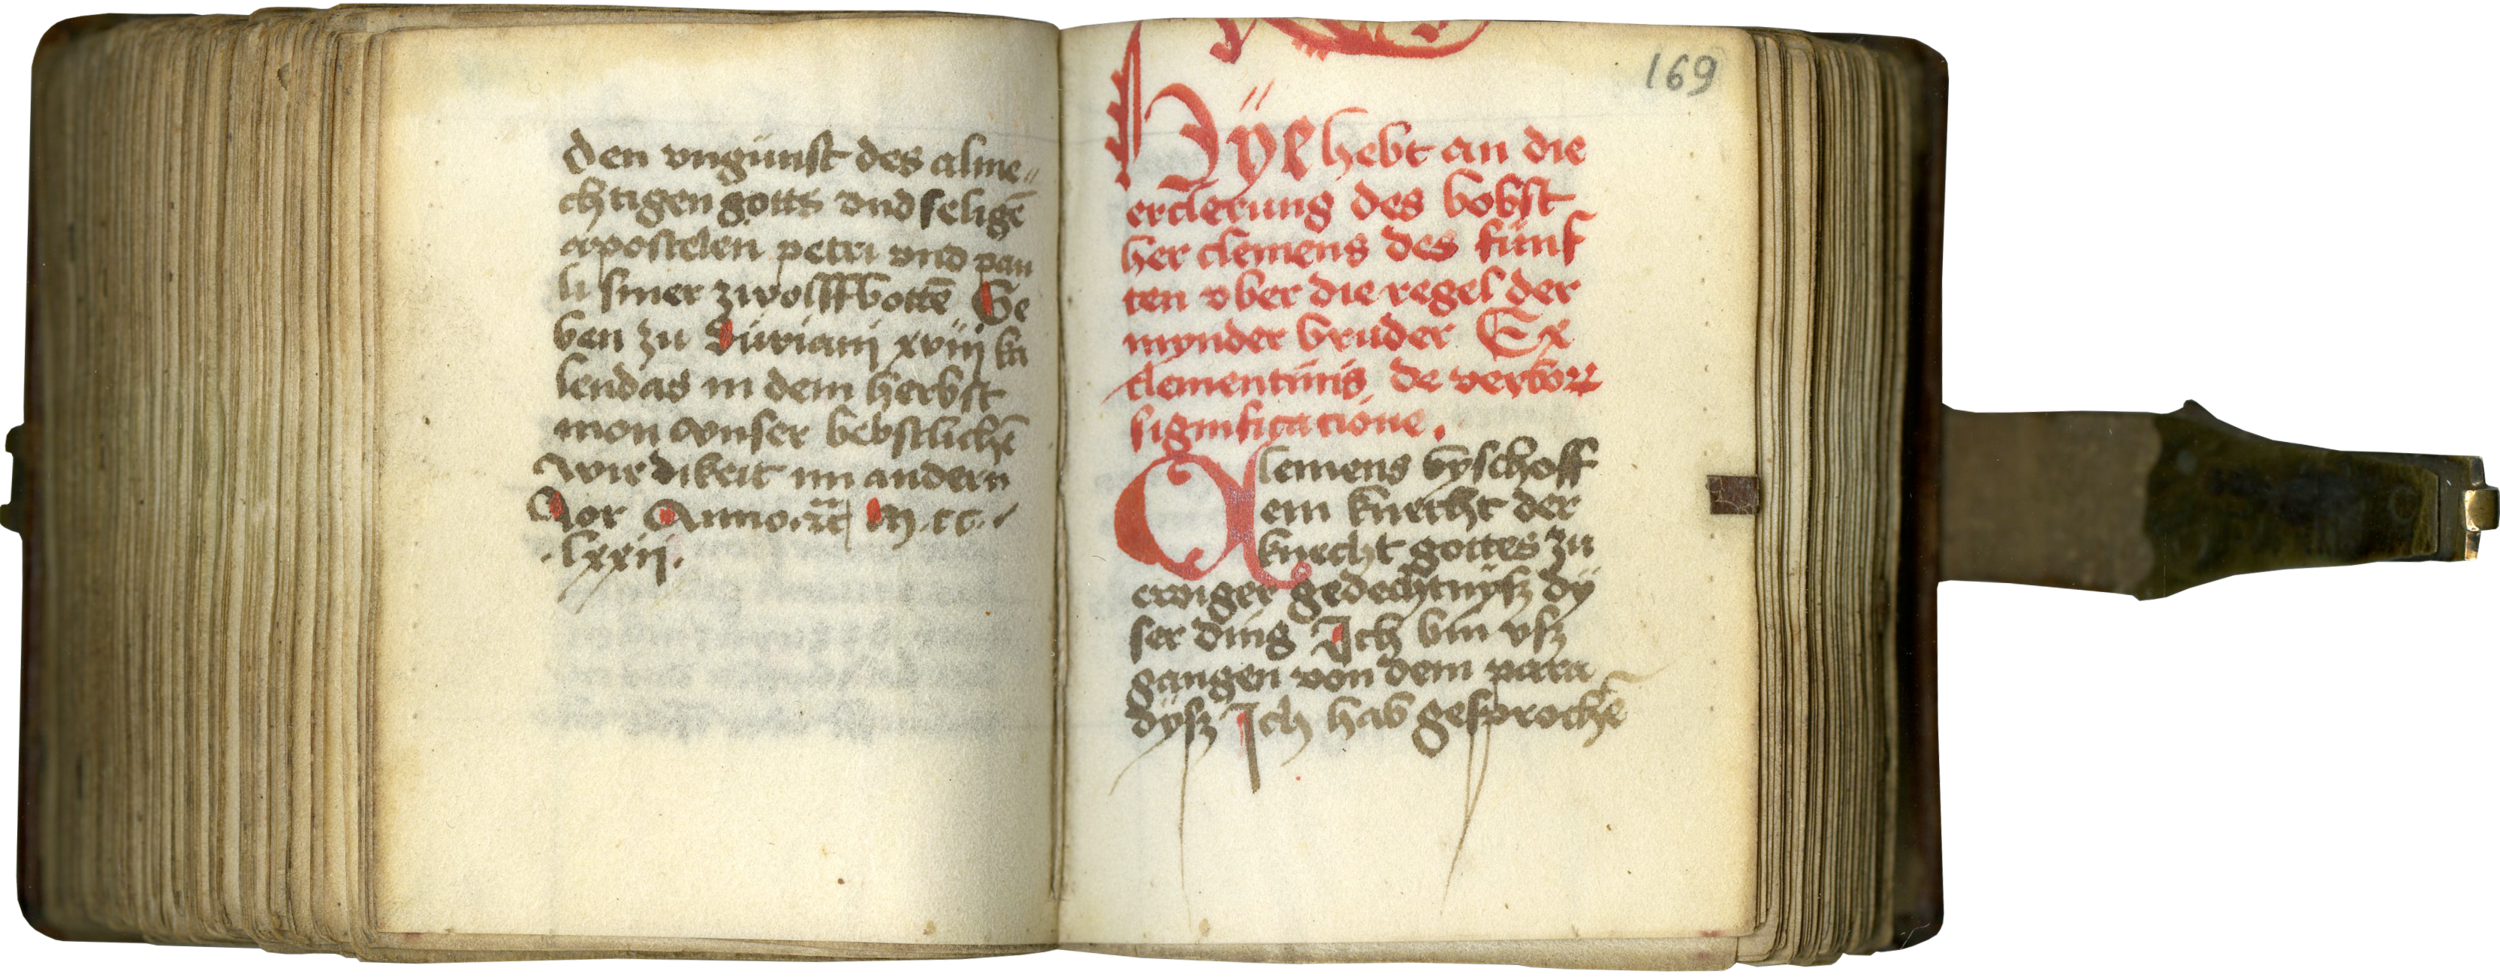 den vngunst des alme〃
chtigen gotts vnd seligē
apostelen petri vnd pau
li siner zwolffbottē Ge
ben zu Suriani xviij ka
lendas in dem herbst
mon vnser bebstlichē
wirdikeit im andern
Jor Anno M cc
lxxij.
169
Hÿe hebt an die
erclerung des bobst
her clemens des fünf
ten vber die regel der
mynder bruder Ex
clementinis de verboꝝ
significatione.
Clemens byschoff
ein knecht der
knecht gottes zu
ewiger gedechtnÿsz dÿ
ser ding Ich bin vsz
gangen von dem para
dÿsz Ich hab gesprochē